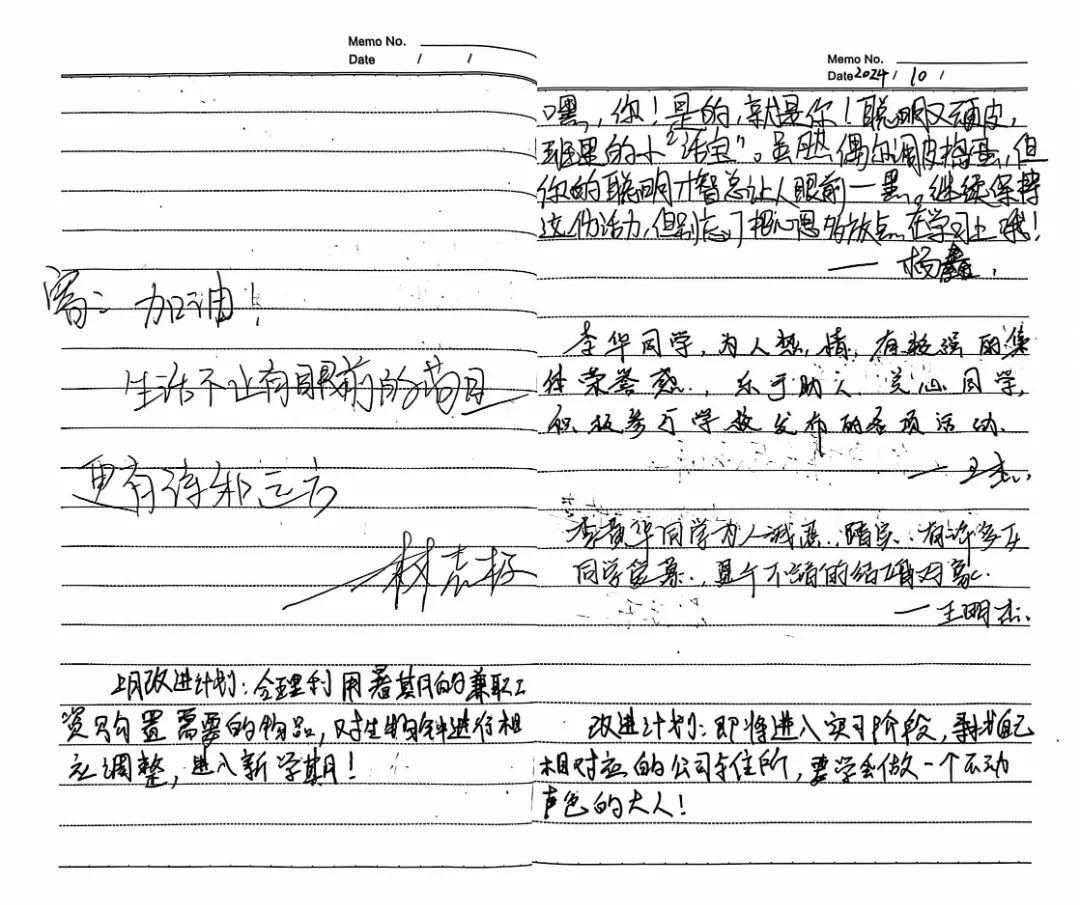 Memo No.
Date / /
加油!
生活不止有眼前的苟且
更有诗和远方
上月改进计划:合理利用暑期的兼职工
资购置需要的物品,对生物钟进行相
应调整,进入新学期!
Memo No.
Date 2024 / 10 /
嘿,你!是的,就是你!聪明又顽皮,
班里的小“活宝”。虽然偶尔调皮捣蛋,但
你的聪明才智总让人眼前一黑。继续保持
这份活力,但别忘了把心思多放点在学习上哦!
— 杨鑫.
李华同学,为人热情,有较强的集
体荣誉感,乐于助人,关心同学,
积极参与学校发布的各项活动.
—王杰.
华同学为人诚恳,踏实,有许多女
同学爱慕,是个不错的结婚对象.
—王明杰.
改进计划:即将进入实习阶段,寻找自己
相对应的公司与住所,要学会做一个不动
声色的大人!